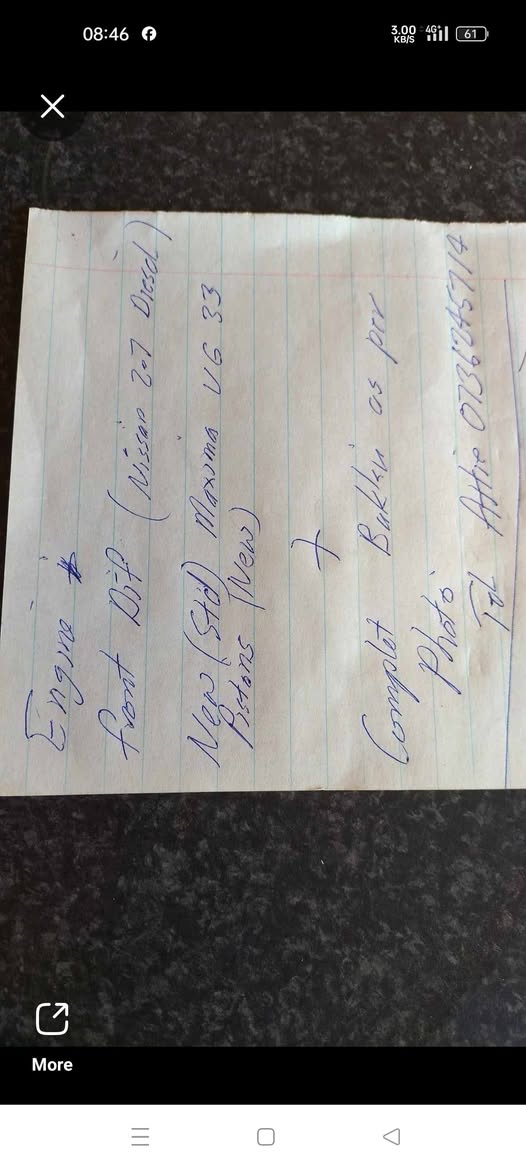 08:46
3.00 KB/S 4G+ 61
Engine
front Dif (Nissan 2.7 Diesel)
New (Std) Maxima VG 33
Pistons (New)
+
Complet Bakkie as per
Photo
Tel Attie
More